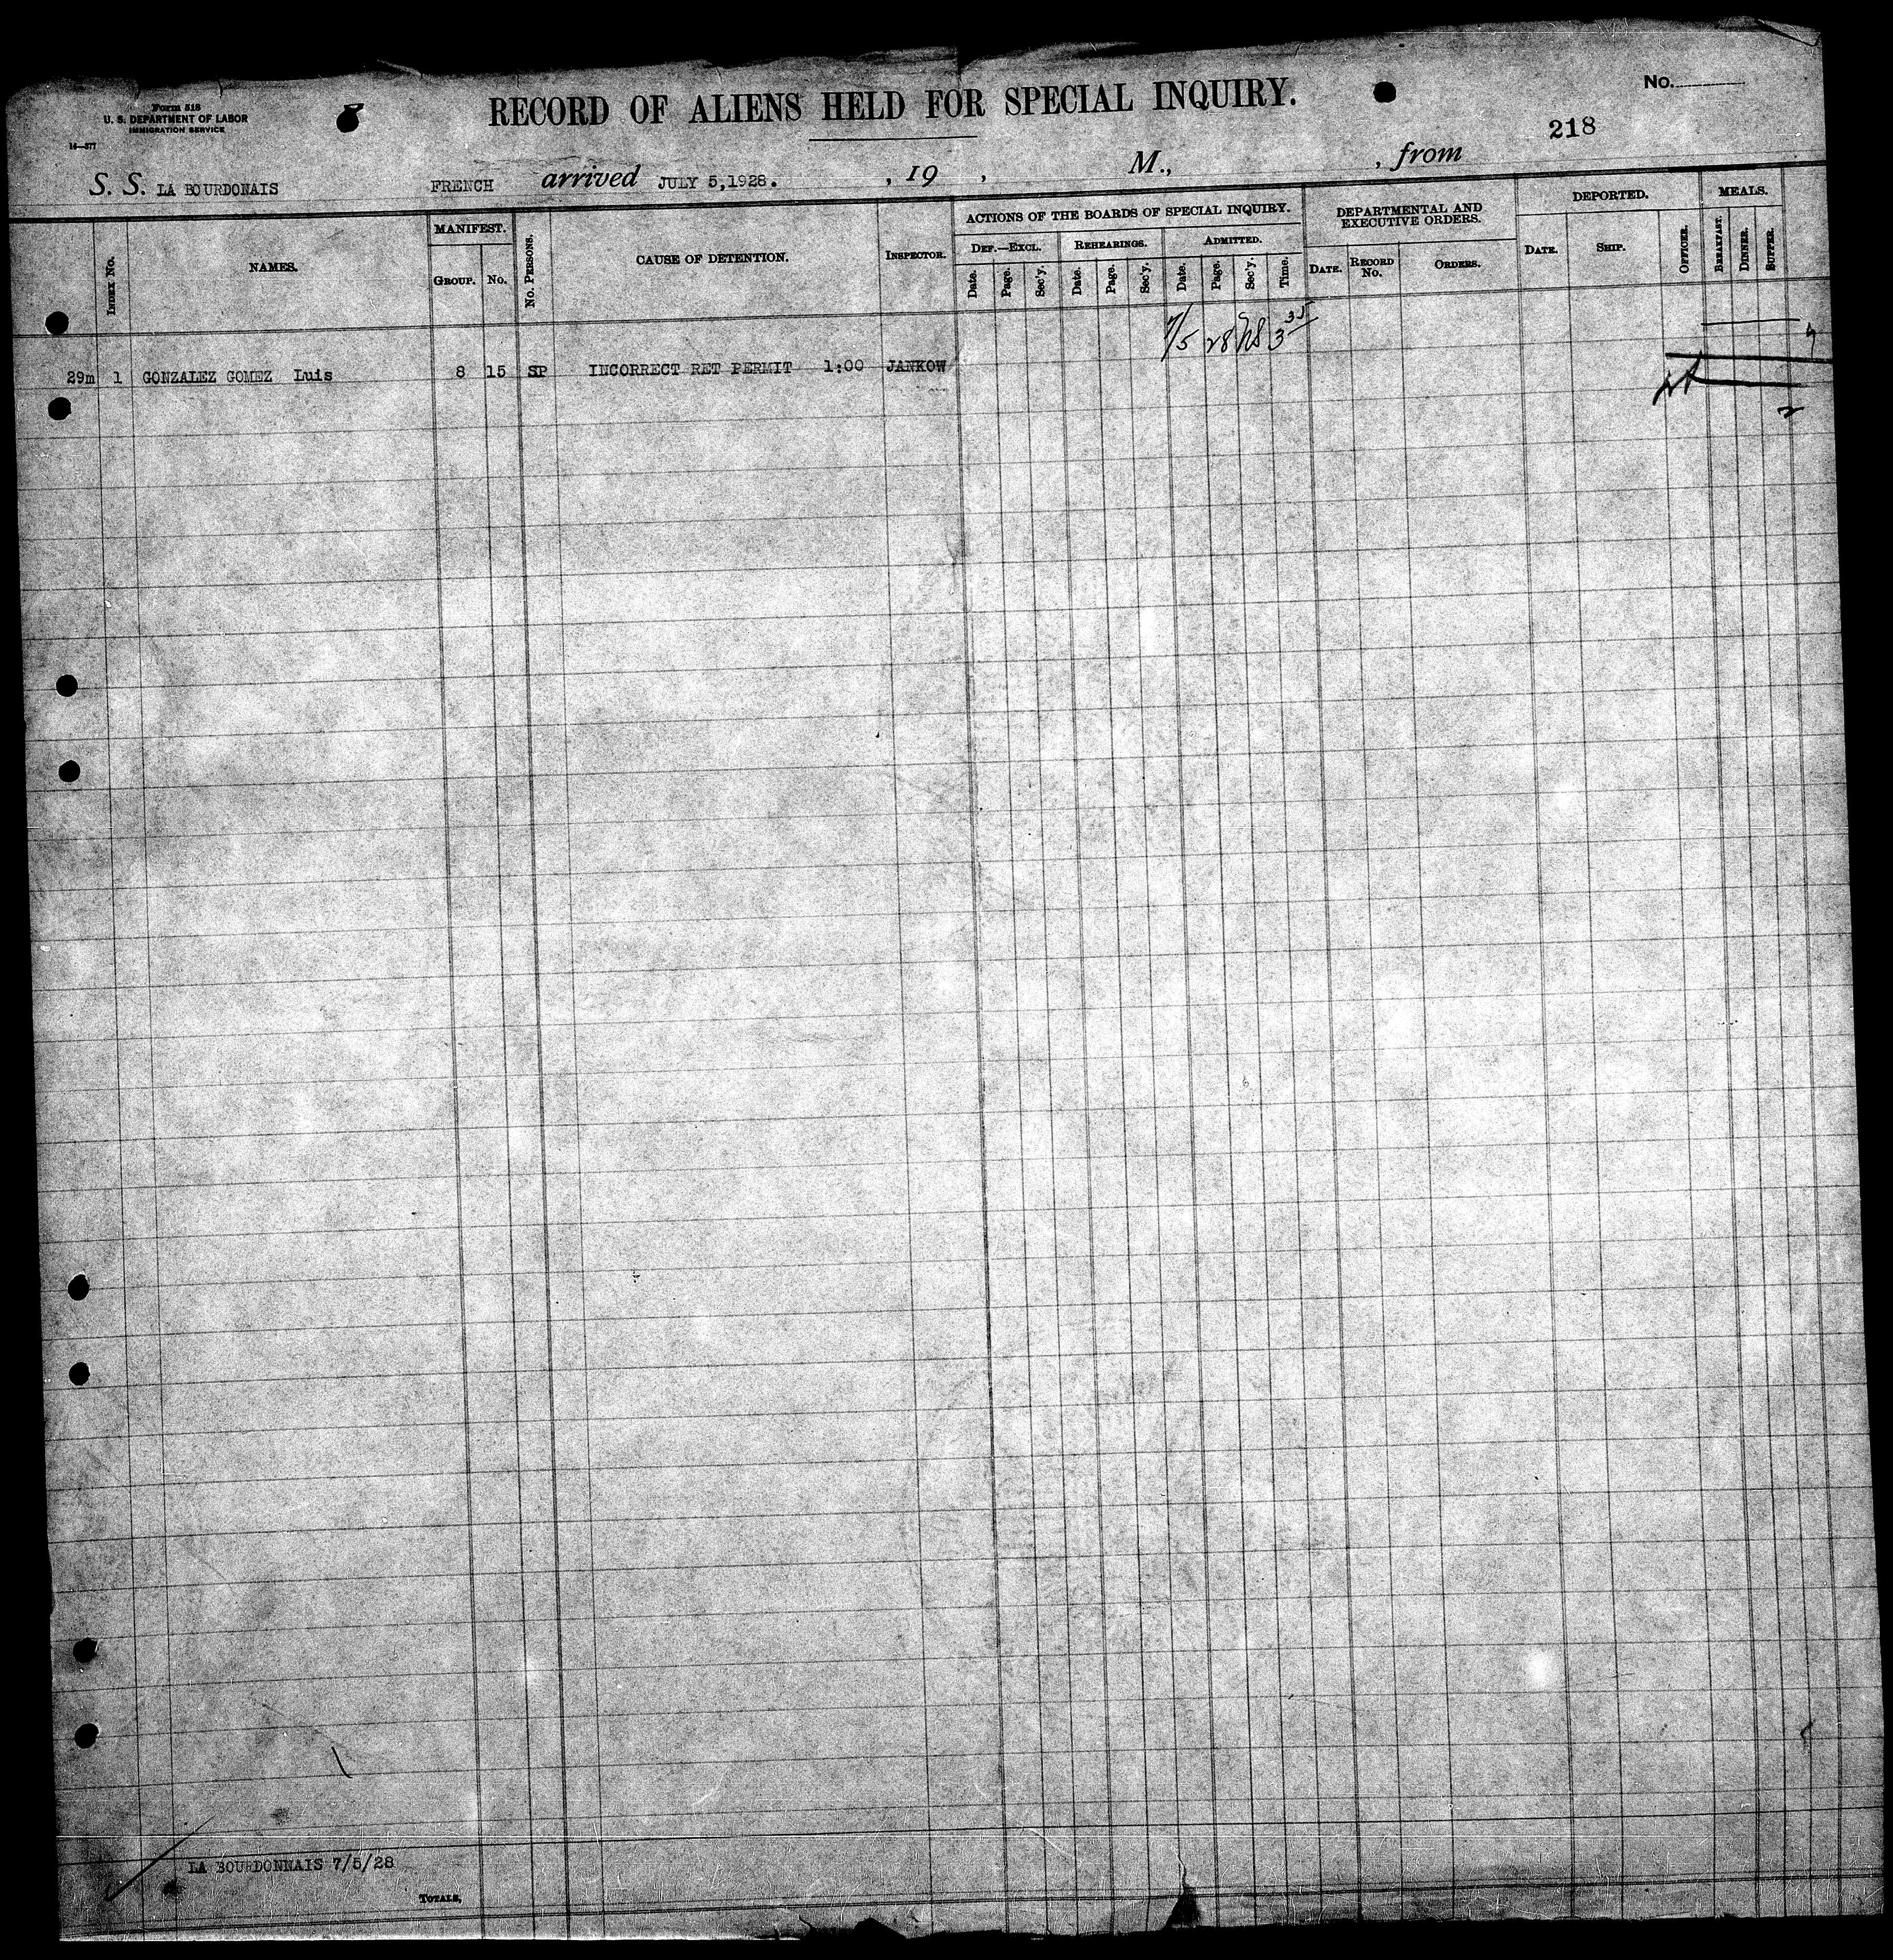 Form 518
U. S. DEPARTMENT OF LABOR
IMMIGRATION SERVICE
14—377
RECORD OF ALIENS HELD FOR SPECIAL INQUIRY.
No.
218
S. S. LA BOURDONAIS FRENCH arrived JULY 5,1928. , 19 , M., , from
INDEX No.
NAMES.
MANIFEST.
GROUP. No.
No. PERSONS.
CAUSE OF DETENTION.
INSPECTOR.
ACTIONS OF THE BOARDS OF SPECIAL INQUIRY.
DEF.—EXCL. REHEARINGS. ADMITTED.
Date. Page. Sec'y. Date. Page. Sec'y. Date. Page. Sec'y. Time.
DEPARTMENTAL AND
EXECUTIVE ORDERS.
DATE. RECORD No. ORDERS.
DEPORTED.
DATE. SHIP. OFFICER.
MEALS.
BREAKFAST. DINNER. SUPPER.
7/5 28 3 35
29m 1 GONZALEZ GOMEZ Luis 8 15 SP INCORRECT RET PERMIT 1:00 JANKOW
2
LA BOURDONNAIS 7/5/28
TOTALS,